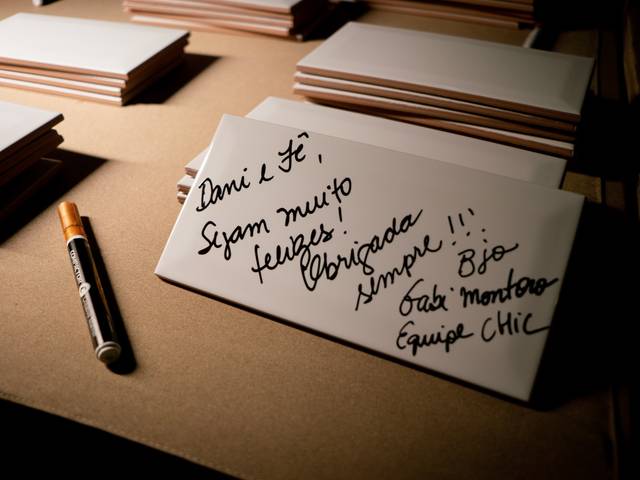 Dani e Fê,
Sejam muito
felizes!
Obrigada
sempre!!!
Bjo
Gabi Montoro
Equipe CHIC